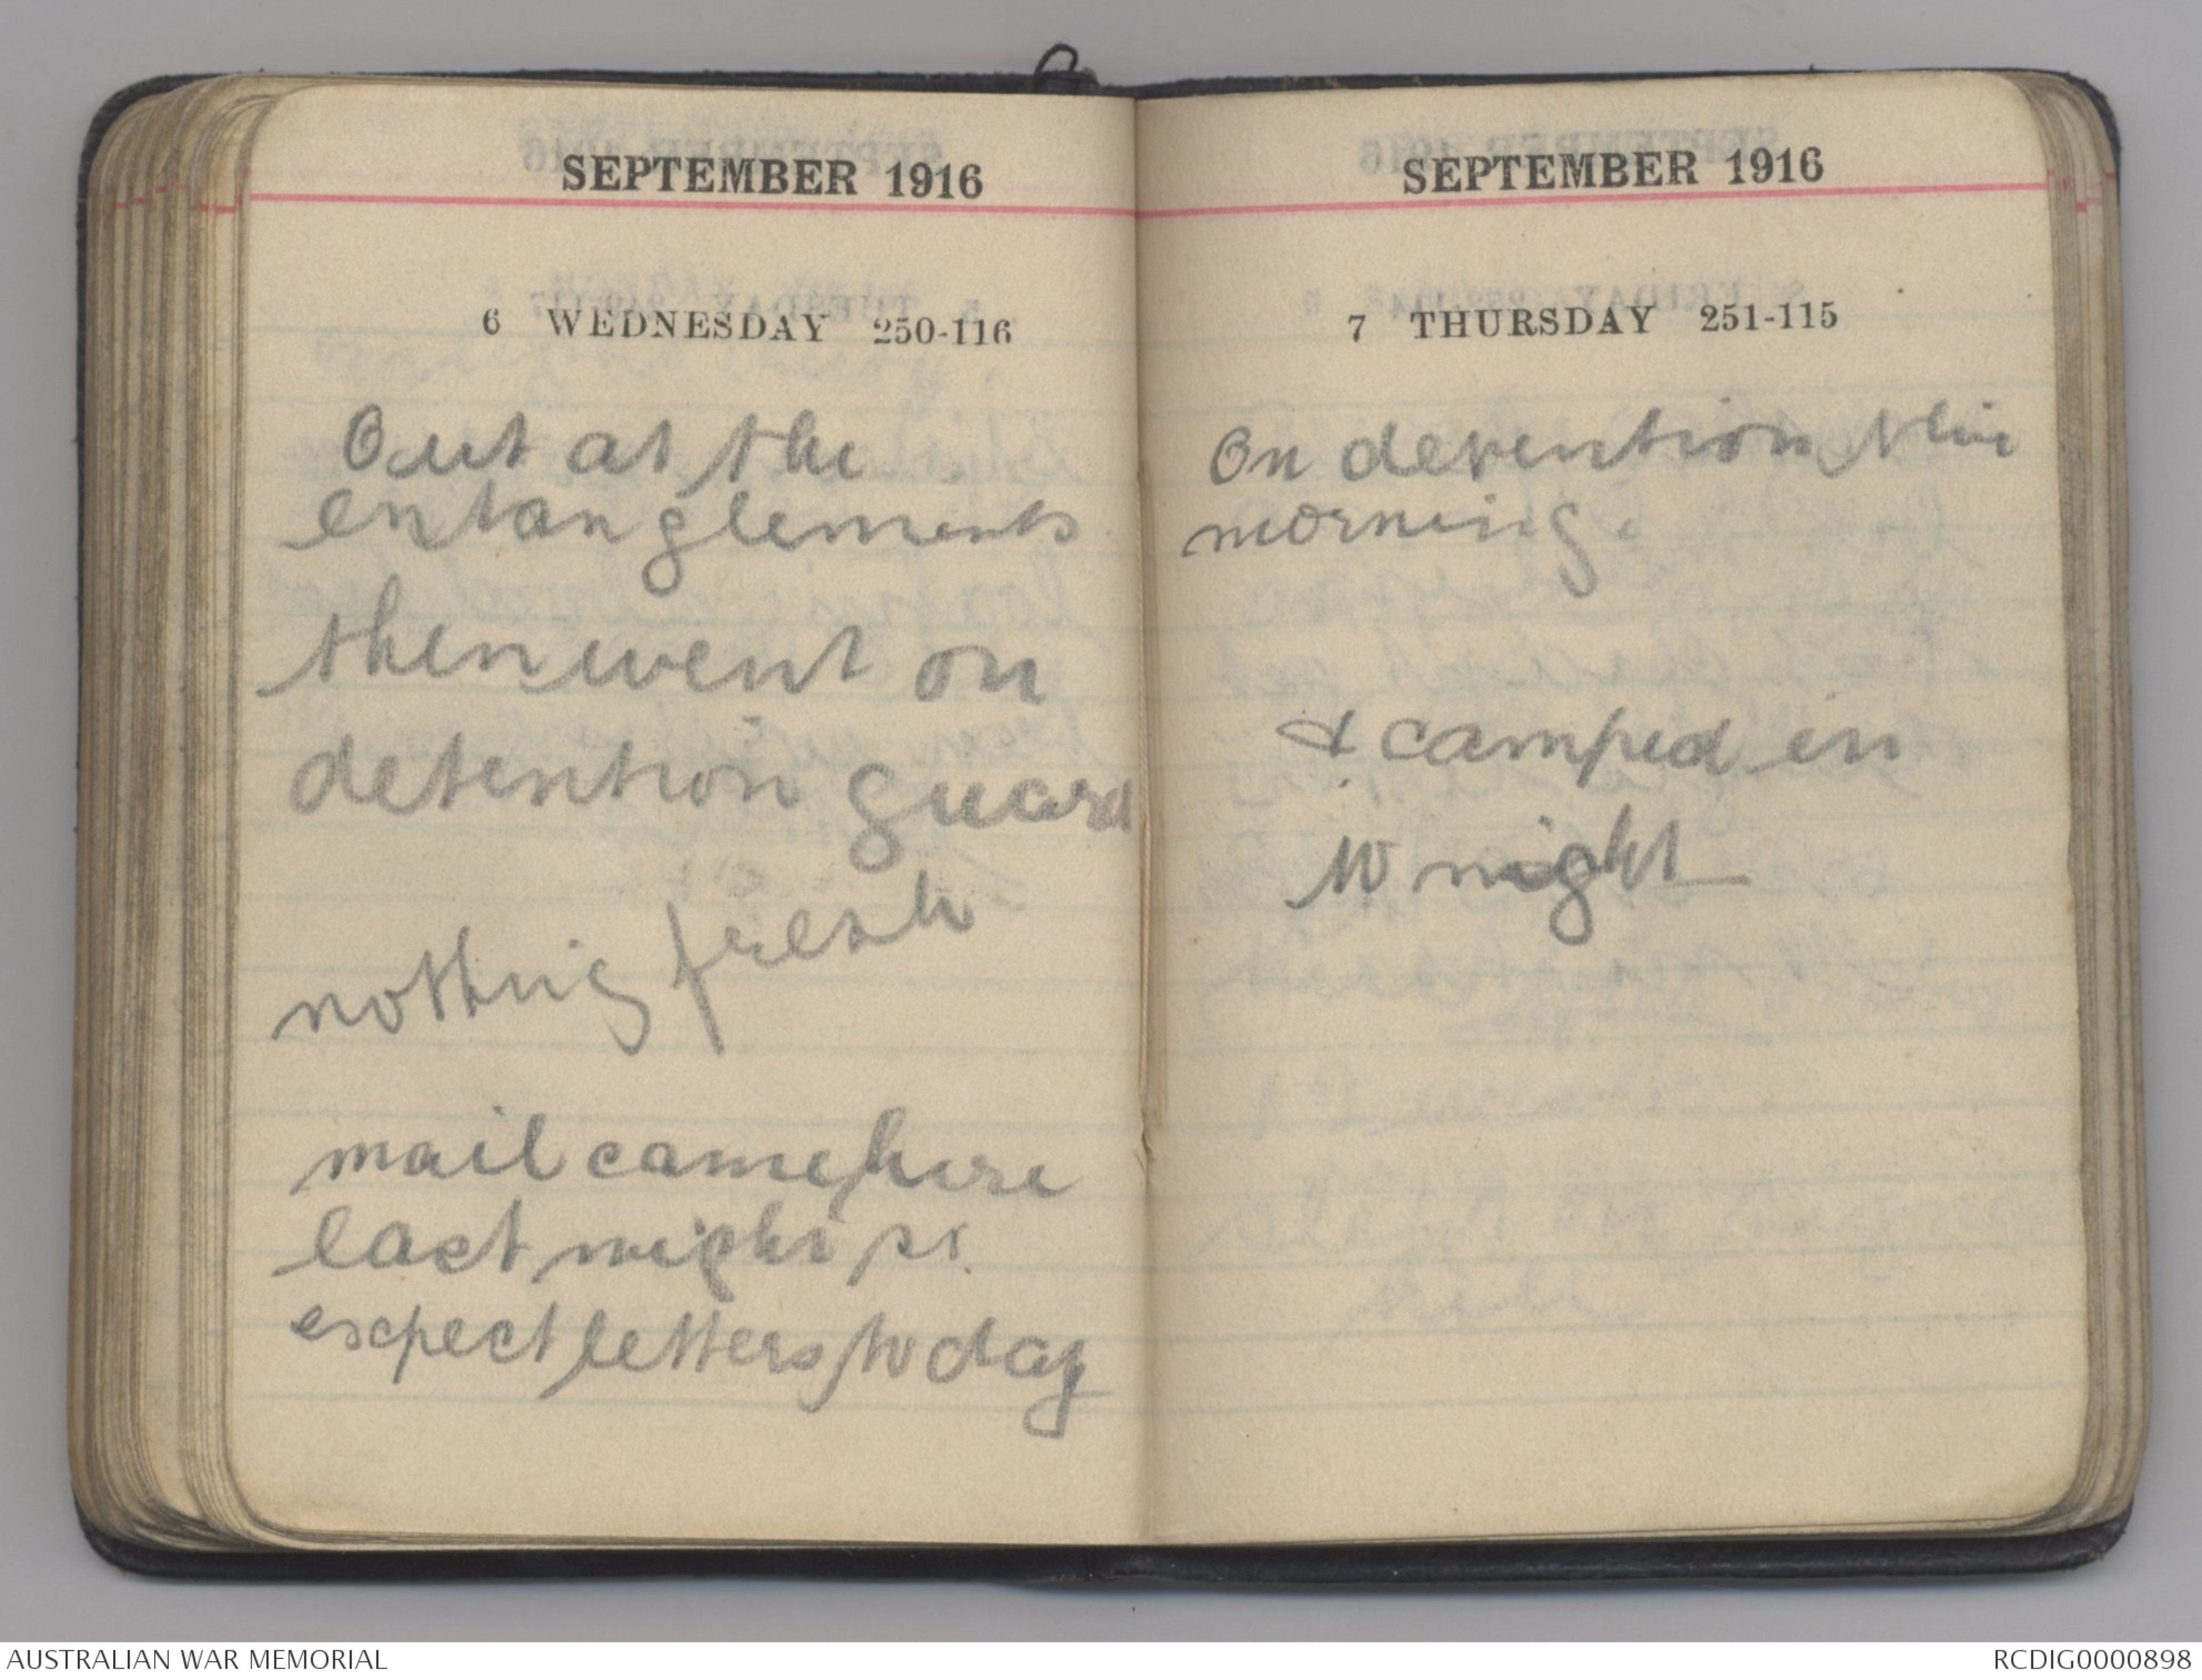 SEPTEMBER 1916
6 WEDNESDAY 250-116
Out at the
entanglements
then went on
detention guard
nothing fresh
mail came here
last night so
expect letters to day
SEPTEMBER 1916
7 THURSDAY 251-115
On detention this
morning.
& camped in
to night
AUSTRALIAN WAR MEMORIAL
RCDIG0000898